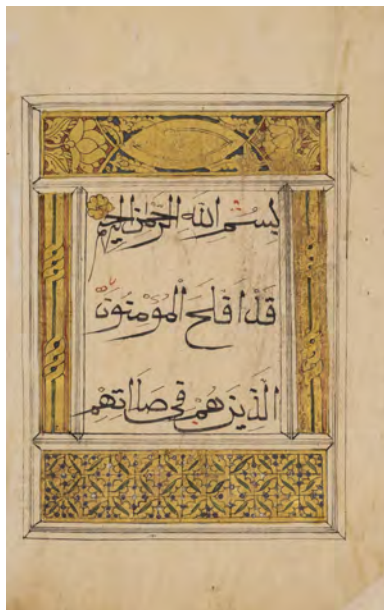 بِسْمِ اللهِ الرَّحْمٰنِ الرَّحِيمِ
قَدْ أَفْلَحَ الْمُؤْمِنُونَ
الَّذِينَ هُمْ فِي صَلَاتِهِمْ